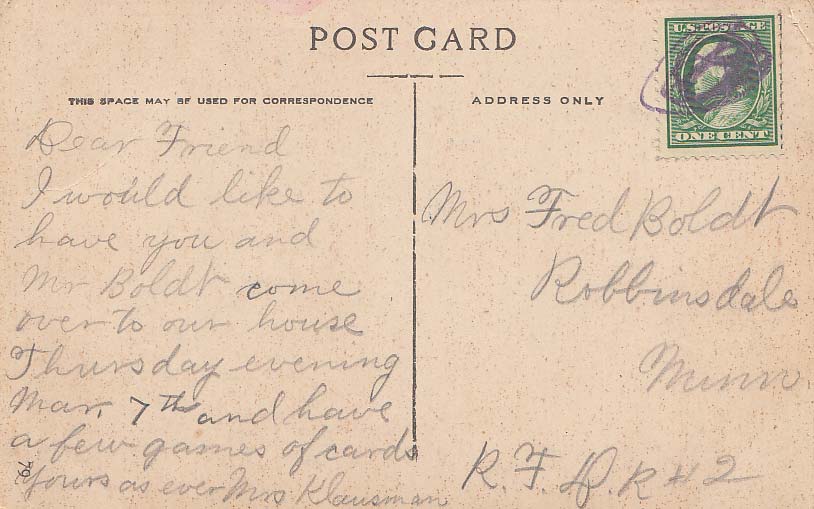 POST CARD
THIS SPACE MAY BE USED FOR CORRESPONDENCE
ADDRESS ONLY
U.S. POSTAGE
ONE CENT
Dear Friend
I would like to
have you and
Mr Boldt come
over to our house
Thursday evening
Mar, 7th and have
a few games of cards
Yours as ever Mrs Klausman
79
Mrs Fred Boldt
Robbinsdale
Minn
R. F. D. R # 2